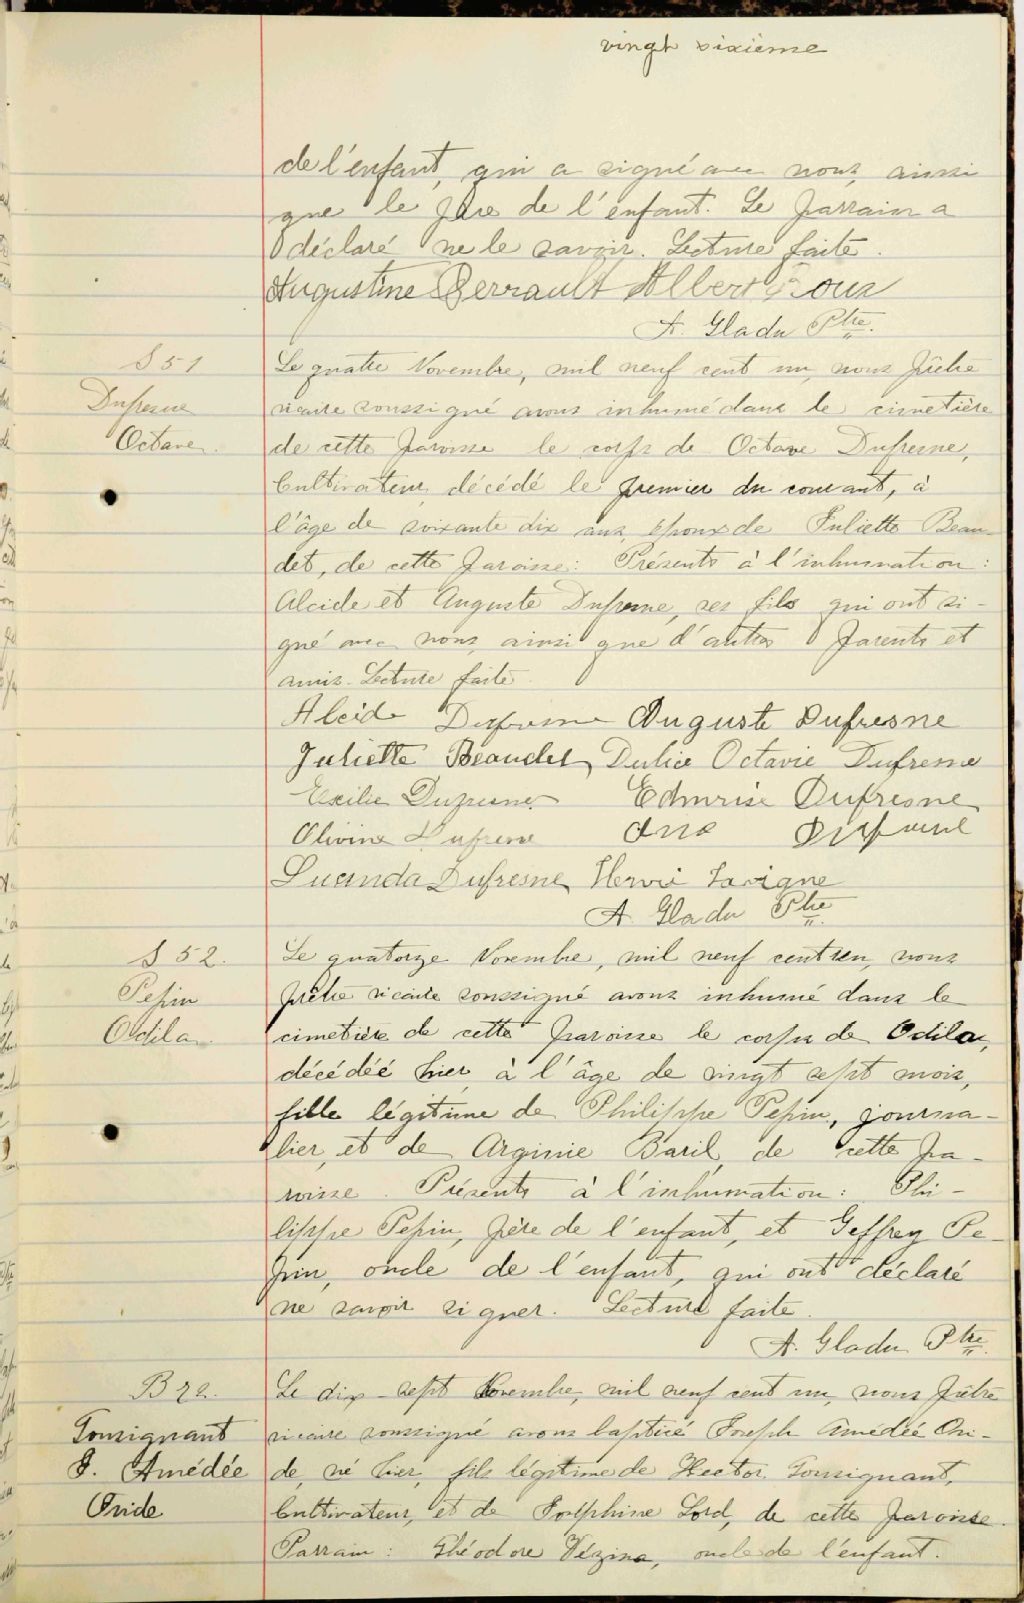 vingt sixième
de l'enfant, qui a signé avec nous, ainsi
que le père de l'enfant. Le parrain a
déclaré ne le savoir. Lecture faite.
Augustine Perrault Albert Roux
A. Gladu Ptre.
S 51
Dufresne
Octave.
Le quatre Novembre, mil neuf cent un, nous prêtre
vicaire soussigné avons inhumé dans le cimetière
de cette paroisse le corps de Octave Dufresne,
Cultivateur, décédé le premier du courant, à
l'âge de soixante dix ans, époux de Juliette Beau-
det, de cette paroisse: Présents à l'inhumation:
Alcide et Auguste Dufresne, ses fils qui ont si-
gné avec nous, ainsi que d'autres parents et
amis. Lecture faite.
Alcide Dufresne Auguste Dufresne
Juliette Beaudet, Octavie Dufresne
Exilie Dufresne Edmrise Dufresne
Olivine Dufresne
Lucinda Dufresne Hervé Lavigne
A. Gladu Ptre.
S 52.
Pepin
Odila.
Le quatorze Novembre, mil neuf cent un, nous
prêtre vicaire soussigné avons inhumé dans le
cimetière de cette paroisse le corps de Odila,
décédée hier, à l'âge de vingt sept mois,
fille légitime de Philippe Pepin, journa-
lier, et de Arginie Baril, de cette pa-
roisse. Présents à l'inhumation: Phi-
lippe Pepin, père de l'enfant, et Geffrey Pe-
pin, oncle de l'enfant, qui ont déclaré
ne savoir signer. Lecture faite.
A. Gladu Ptre.
B 72.
Tousignant
J. Amédée
Ovide
Le dix-sept Novembre, mil neuf cent un, nous prêtre
vicaire soussigné avons baptisé Joseph Amédée Ovi-
de, né hier, fils légitime de Hector Tousignant,
Cultivateur, et de Joséphine Lord, de cette paroisse.
Parrain: Théodore Vézina, oncle de l'enfant.